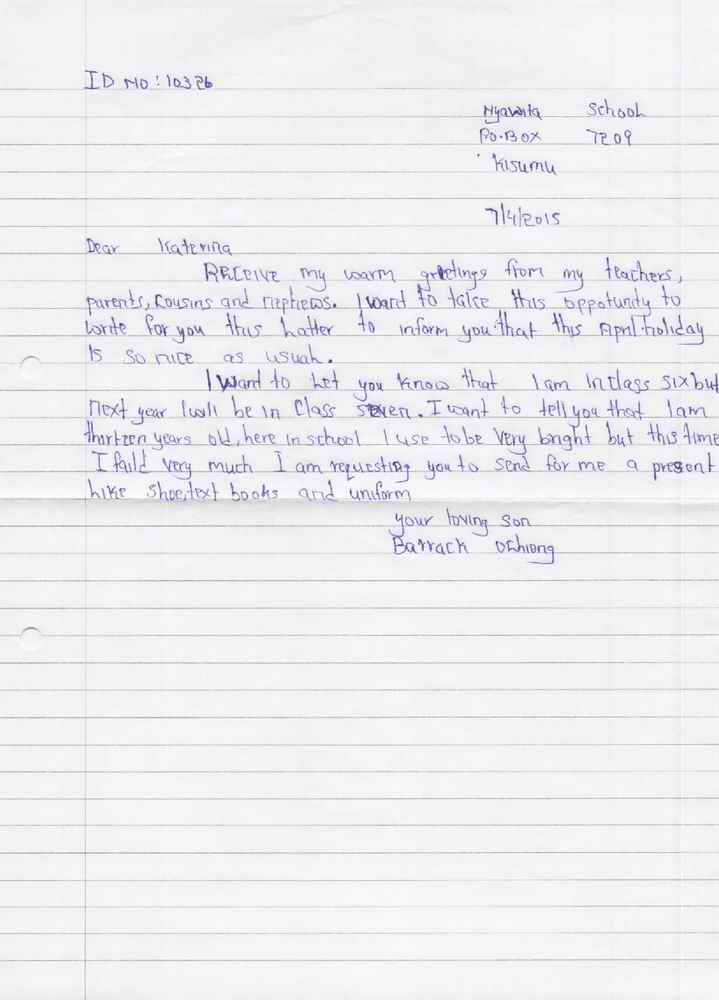 ID NO: 10326
Nyawita School
P.O.BOX 7209
Kisumu
7/4/2015
Dear Katerina
RECEIVE my warm greetings from my teachers,
parents, cousins and nephews. I want to take this oppotunity to
write for you this latter to inform you that this April holiday
is so nice as usual.
I want to let you know that I am in class six but
next year I will be in class seven. I want to tell you that I am
thirteen years old, here in school I use to be very bright but this time
I faild very much I am requesting you to send for me a present
like shoe, text books and uniform
your loving son
Barrack Ochieng